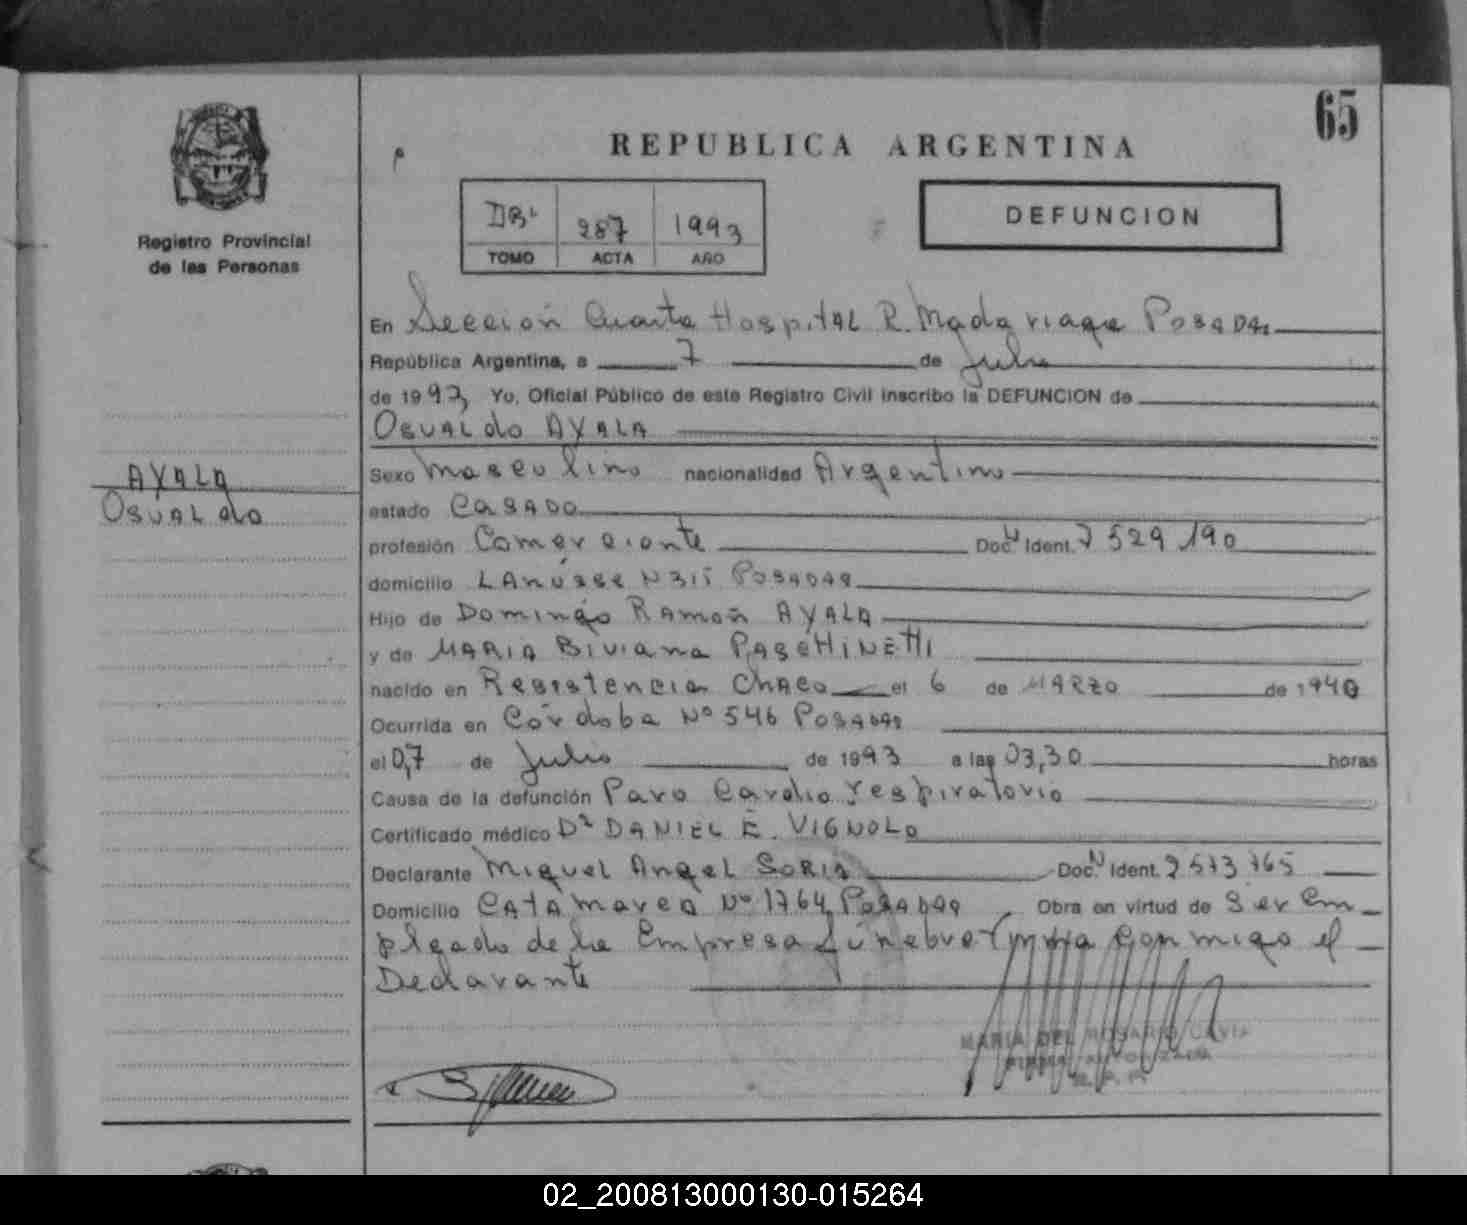 65
REPUBLICA ARGENTINA
Registro Provincial
de las Personas
287 1993
TOMO ACTA AÑO
DEFUNCION
En Sección Cuarta Hospital R. Madariaga Posadas
República Argentina, a 7 de Julio
de 1993 Yo, Oficial Público de este Registro Civil inscribo la DEFUNCION de
Osvaldo AYALA
AYALA
Osvaldo
Sexo Masculino nacionalidad Argentino
estado Casado
profesión Comerciante Doc. Ident. 7 529 190
domicilio Lanusse N 315 Posadas
Hijo de Domingo Ramón AYALA
y de María Biviana PASCHINETTI
nacido en Resistencia Chaco el 6 de Marzo de 1940
Ocurrida en Córdoba Nº 546 Posadas
el 07 de Julio de 1993 a las 03,30 horas
Causa de la defunción Paro Cardio respiratorio
Certificado médico Dr DANIEL E. VIGNOLO
Declarante Miguel Angel SORIA Doc. Ident. 7 573 765
Domicilio Catamarca Nº 1764 Posadas Obra en virtud de Ser Em
pleado de la Empresa fúnebre firma conmigo el
Declarante
MARIA DEL ROSARIO CAVIA
FIRMA AUTORIZADA
02_200813000130-015264